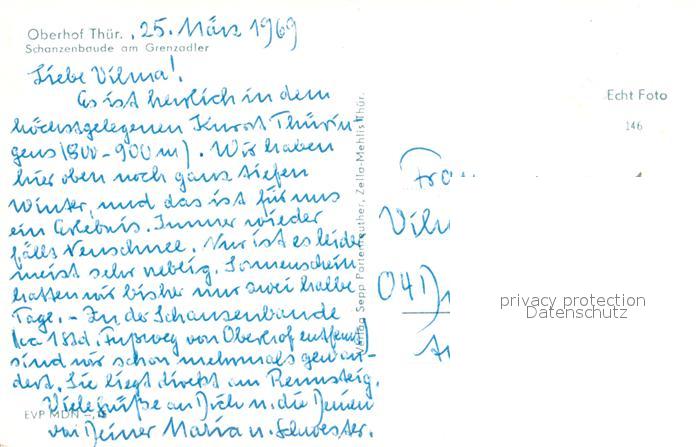 Oberhof Thür., 25. März 1969
Schanzenbaude am Grenzadler
Liebe Vilma!
Es ist herrlich in dem
höchstgelegenen Kurort Thürin-
gens (800-900 m). Wir haben
hier oben noch ganz tiefen
Winter, und das ist für uns
ein Erlebnis. Immer wieder
fällt Neuschnee. Nur ist es leider
meist sehr neblig. Sonnenschein
hatten wir bisher nur zwei halbe
Tage. - In der Schanzenbaude
(ca 1 Std. Fußweg von Oberhof entfernt)
sind wir schon mehrmals gewan-
dert. Sie liegt direkt am Rennsteig.
Viele Grüße an Dich u. die Deinen
von Deiner Maria u. Schwester.
EVP MDN
Verlag Sepp Partenfauther, Zella-Mehlis Thür.
Echt Foto
146
Vilm
privacy protection
Datenschutz